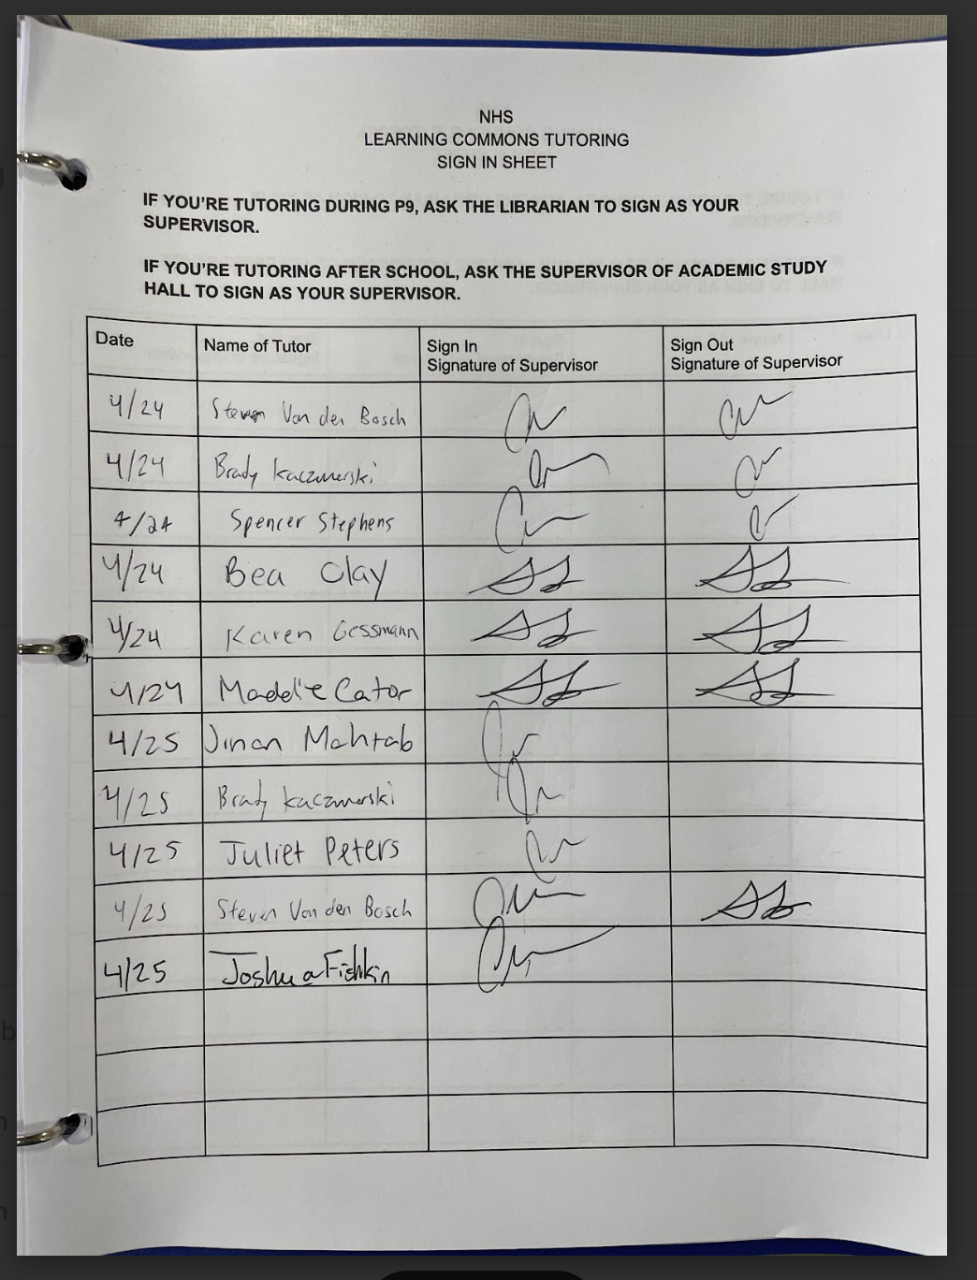 NHS
LEARNING COMMONS TUTORING
SIGN IN SHEET
IF YOU'RE TUTORING DURING P9, ASK THE LIBRARIAN TO SIGN AS YOUR
SUPERVISOR.
IF YOU'RE TUTORING AFTER SCHOOL, ASK THE SUPERVISOR OF ACADEMIC STUDY
HALL TO SIGN AS YOUR SUPERVISOR.
Date Name of Tutor Sign In Signature of Supervisor Sign Out Signature of Supervisor
4/24 Steven Van den Bosch
4/24 Brady Kaczmerski
4/24 Spencer Stephens
4/24 Bea Clay
4/24 Karen Gessmann
4/24 Maddie Cator
4/25 Jinan Mahtab
4/25 Brady Kaczmerski
4/25 Juliet Peters
4/25 Steven Van den Bosch
4/25 Joshua Fishkin